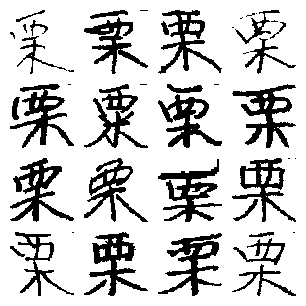 栗栗栗栗
栗粟栗栗
栗栗栗栗
栗栗栗栗